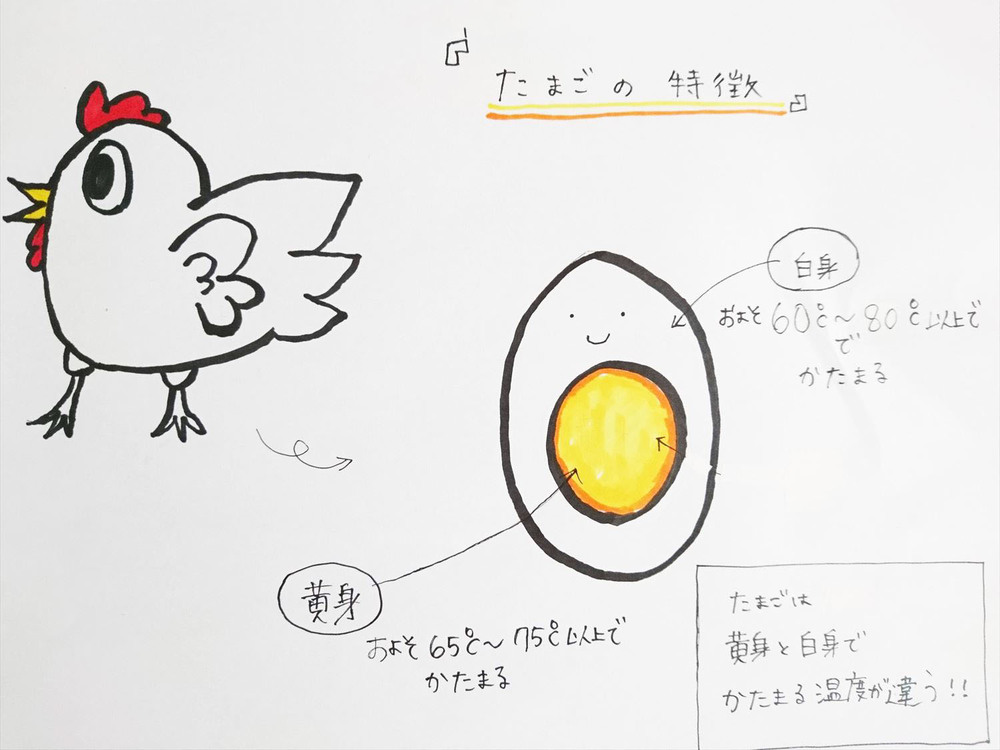 『たまごの特徴』
白身
およそ60℃〜80℃以上で
で
かたまる
黄身
およそ65℃〜75℃以上で
かたまる
たまごは
黄身と白身で
かたまる温度が違う!!